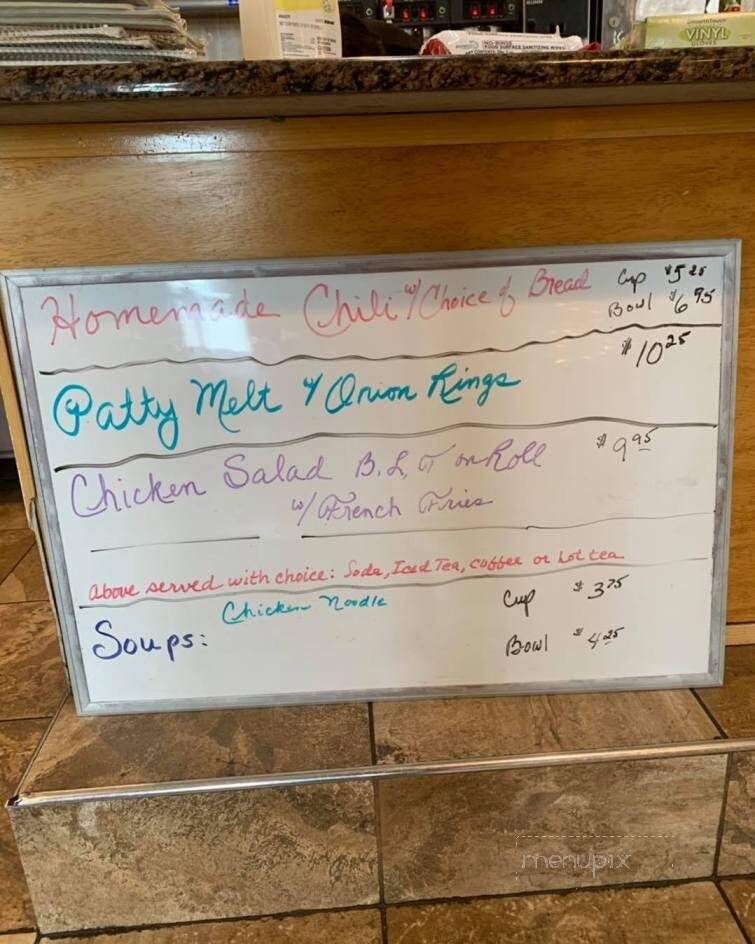 NO-RINSE
FOOD SURFACE SANITIZING WIPES
VINYL
GLOVES
Homemade Chili w/ Choice of Bread Cup $5.25
Bowl $6.95
Patty Melt w/ Onion Rings $10.25
Chicken Salad B.L.T on Roll $9.95
w/ French Fries
above served with choice: Soda, Iced Tea, coffee or hot tea
Chicken Noodle Cup $3.75
Soups: Bowl $4.25
menupix